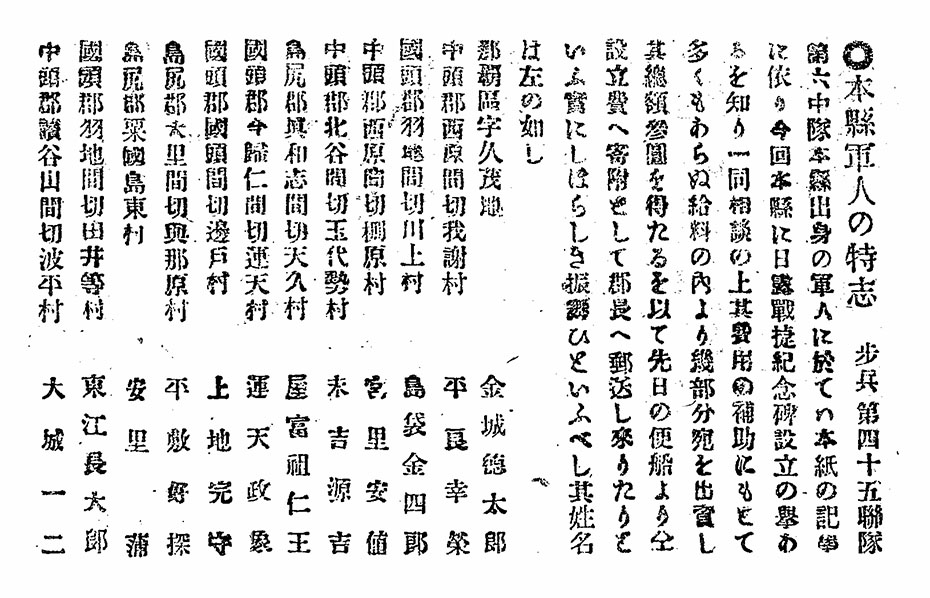 ◯本縣軍人の特志　歩兵第四十五聯隊
第六中隊本縣出身の軍人に於てハ本紙の記事
に依り今回本縣に日露戰捷紀念碑設立の擧あ
るを知り一同相談の上其費用の補助にもとて
多くもあらぬ給料の内より幾部分宛を出資し
其總額參圓を得たるを以て先日の便船より仝
設立費へ寄附として郡長へ郵送し來りたりと
いふ實にしほらしき振舞ひといふべし其姓名
は左の如し
那覇區字久茂地　金城徳太郎
中頭郡西原間切我謝村　平良幸榮
國頭郡羽地間切川上村　島袋金四郎
中頭郡西原間切棚原村　宮里安値
中頭郡北谷間切玉代勢村　末吉源吉
島尻郡眞和志間切天久村　屋富祖仁王
國頭郡今歸仁間切運天村　運天政象
國頭郡國頭間切邊戸村　上地完守
島尻郡大里間切與那原村　平敷好探
島尻郡粟國島東村　安里蒲
國頭郡羽地間切田井等村　東江長太郎
中頭郡讀谷山間切波平村　大城一二